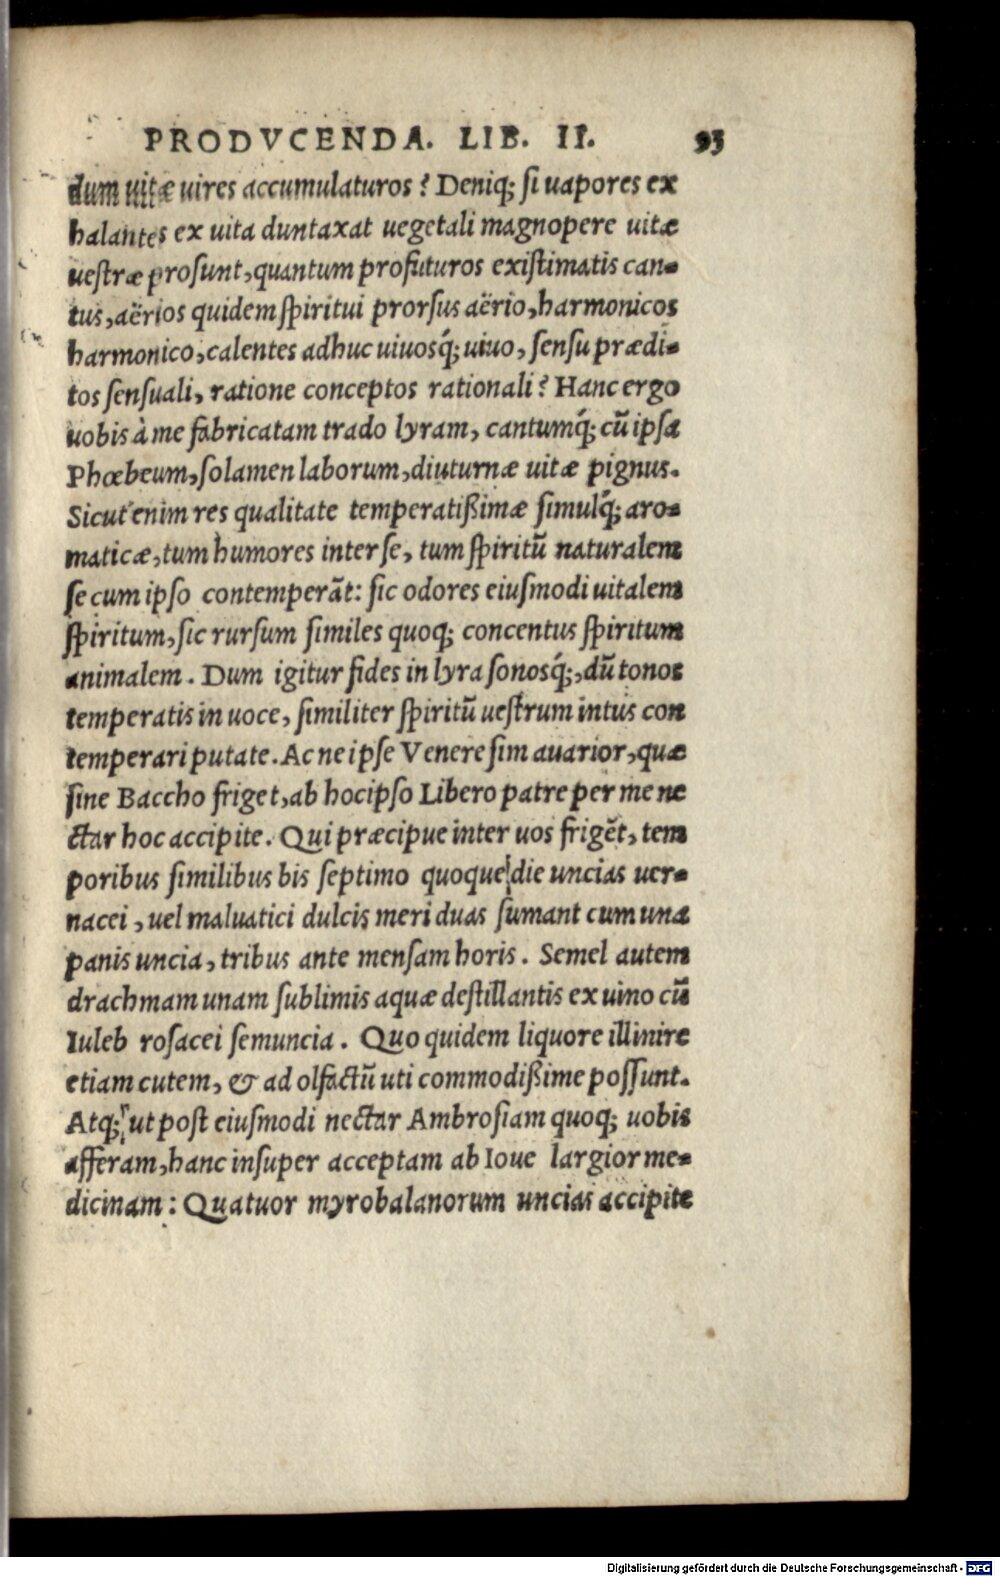 PRODVCENDA. LIB. II. 93
dum uitæ uires accumulaturos? Deniq; si uapores ex
halantes ex uita duntaxat uegetali magnopere uitæ
uestræ prosunt, quantum profuturos existimatis can-
tus, aërios quidem spiritui prorsus aërio, harmonicos
harmonico, calentes adhuc uiuosq́; uiuo, sensu prædi-
tos sensuali, ratione conceptos rationali? Hanc ergo
uobis à me fabricatam trado lyram, cantumq́; cũ ipsa
Phœbeum, solamen laborum, diuturnæ uitæ pignus.
Sicut enim res qualitate temperatißimæ simulq́; aro-
maticæ, tum humores inter se, tum spiritũ naturalem
se cum ipso contemperãt: sic odores eiusmodi uitalem
spiritum, sic rursum similes quoq; concentus spiritum
animalem. Dum igitur fides in lyra sonosq́;, dũ tonos
temperatis in uoce, similiter spiritũ uestrum intus con
temperari putate. Ac ne ipse Venere sim auarior, quæ
sine Baccho friget, ab hoc ipso Libero patre per me ne
ctar hoc accipite. Qui præcipue inter uos frigẽt, tem
poribus similibus bis septimo quoque die uncias uer-
nacei, uel maluatici dulcis meri duas sumant cum una
panis uncia, tribus ante mensam horis. Semel autem
drachmam unam sublimis aquæ destillantis ex uino cũ
Iuleb rosacei semuncia. Quo quidem liquore illinire
etiam cutem, & ad olfactũ uti commodißime possunt.
Atq; ut post eiusmodi nectar Ambrosiam quoq; uobis
afferam, hanc insuper acceptam ab Ioue largior me-
dicinam: Quatuor myrobalanorum uncias accipite
Digitalisierung gefördert durch die Deutsche Forschungsgemeinschaft - DFG